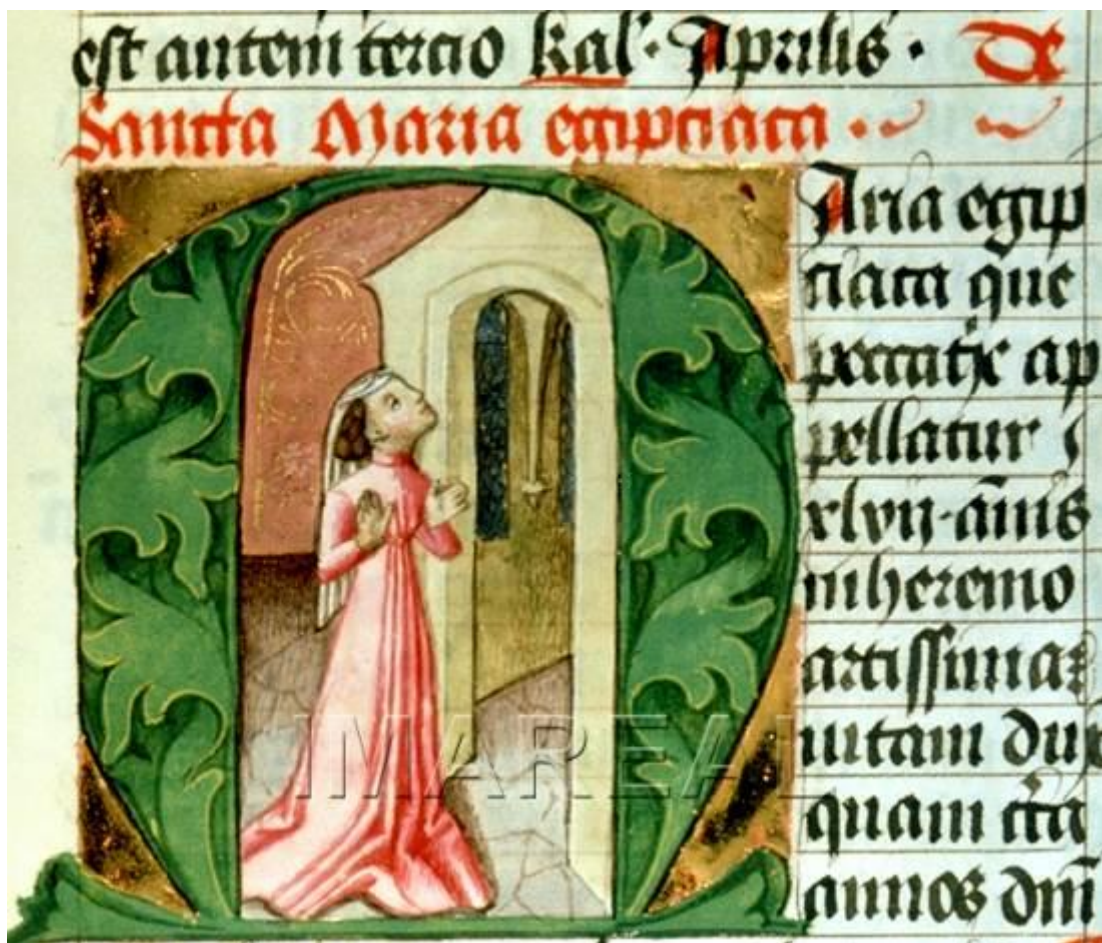 est autem tercio kal'· Aprilis · De
Sancta Maria egipciaca
MAria egip
ciaca que
peccatͥx ap
pellatur i
xlvij· ānis
in heremo
artissimaꝫ
uitam dux
quam cͥca
annos dnī
IMAREAL